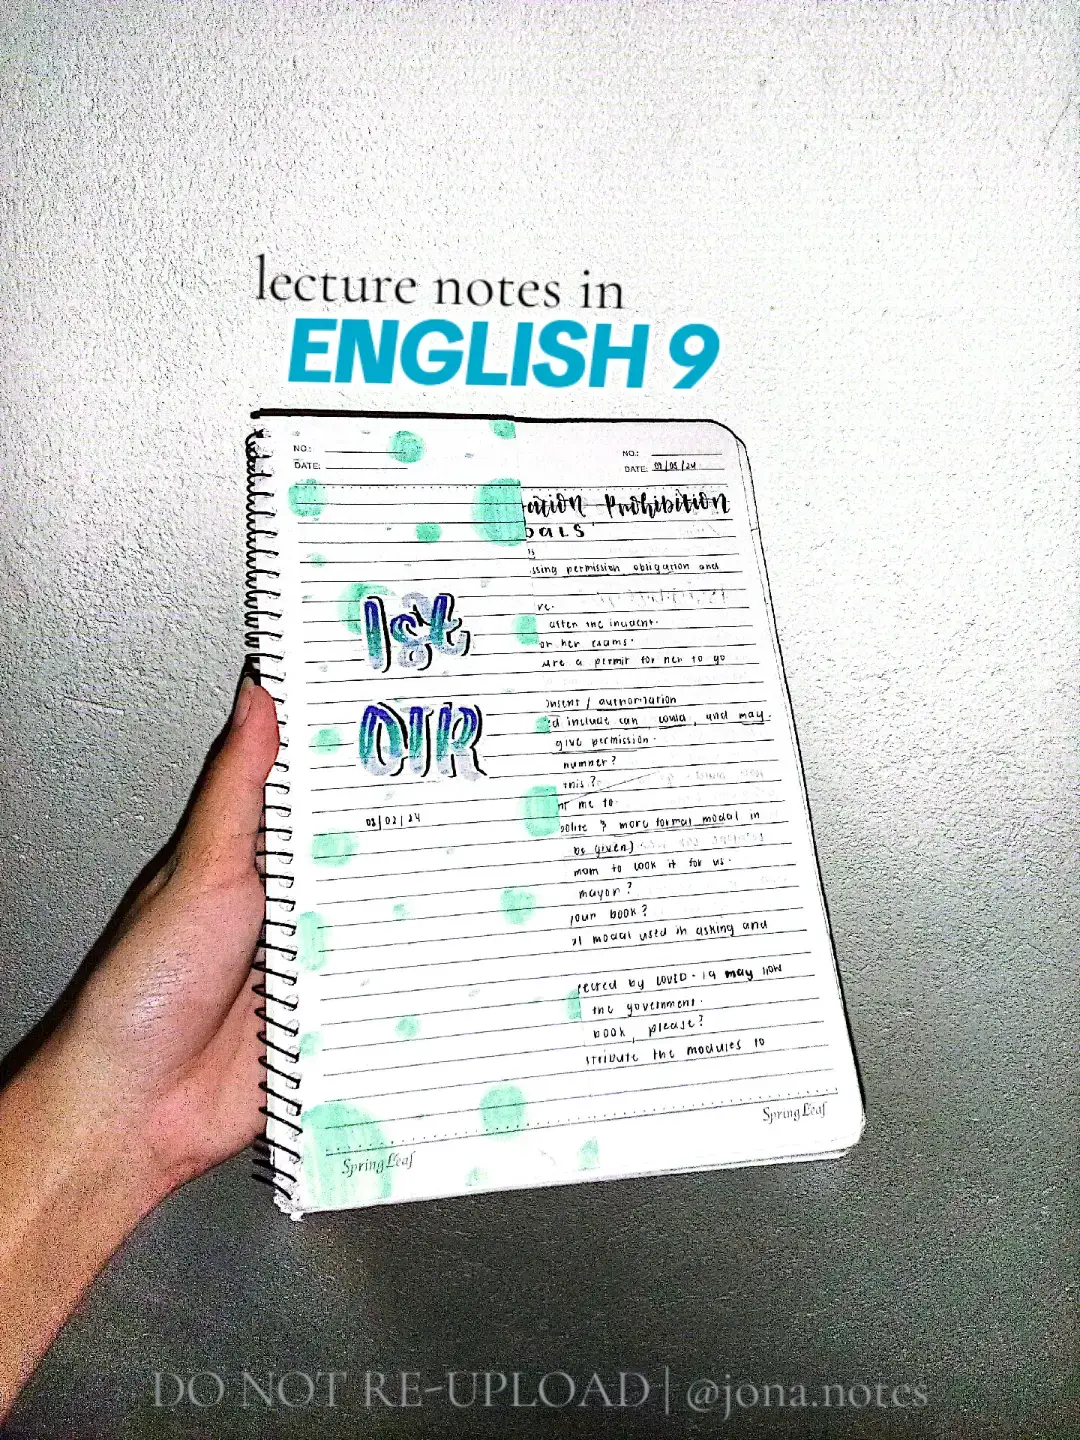 lecture notes in
ENGLISH 9
NO.:
DATE:
1st
QTR
08/02/24
SpringLeaf
NO.:
DATE:
ation - Prohibition
OALS
ssing permission obligation and
ve.
after the incident.
or her exams.
are a permit for her to go
onsent / authorization
d include can could, and may.
give permission.
number?
this?
nt me to.
polite & more formal modal in
be given)
mom to cook it for us.
mayor?
your book?
al modal used in asking and
fected by COVID-19 may now
the government.
book, please?
stribute the modules to
SpringLeaf
DO NOT RE-UPLOAD | @jona.notes